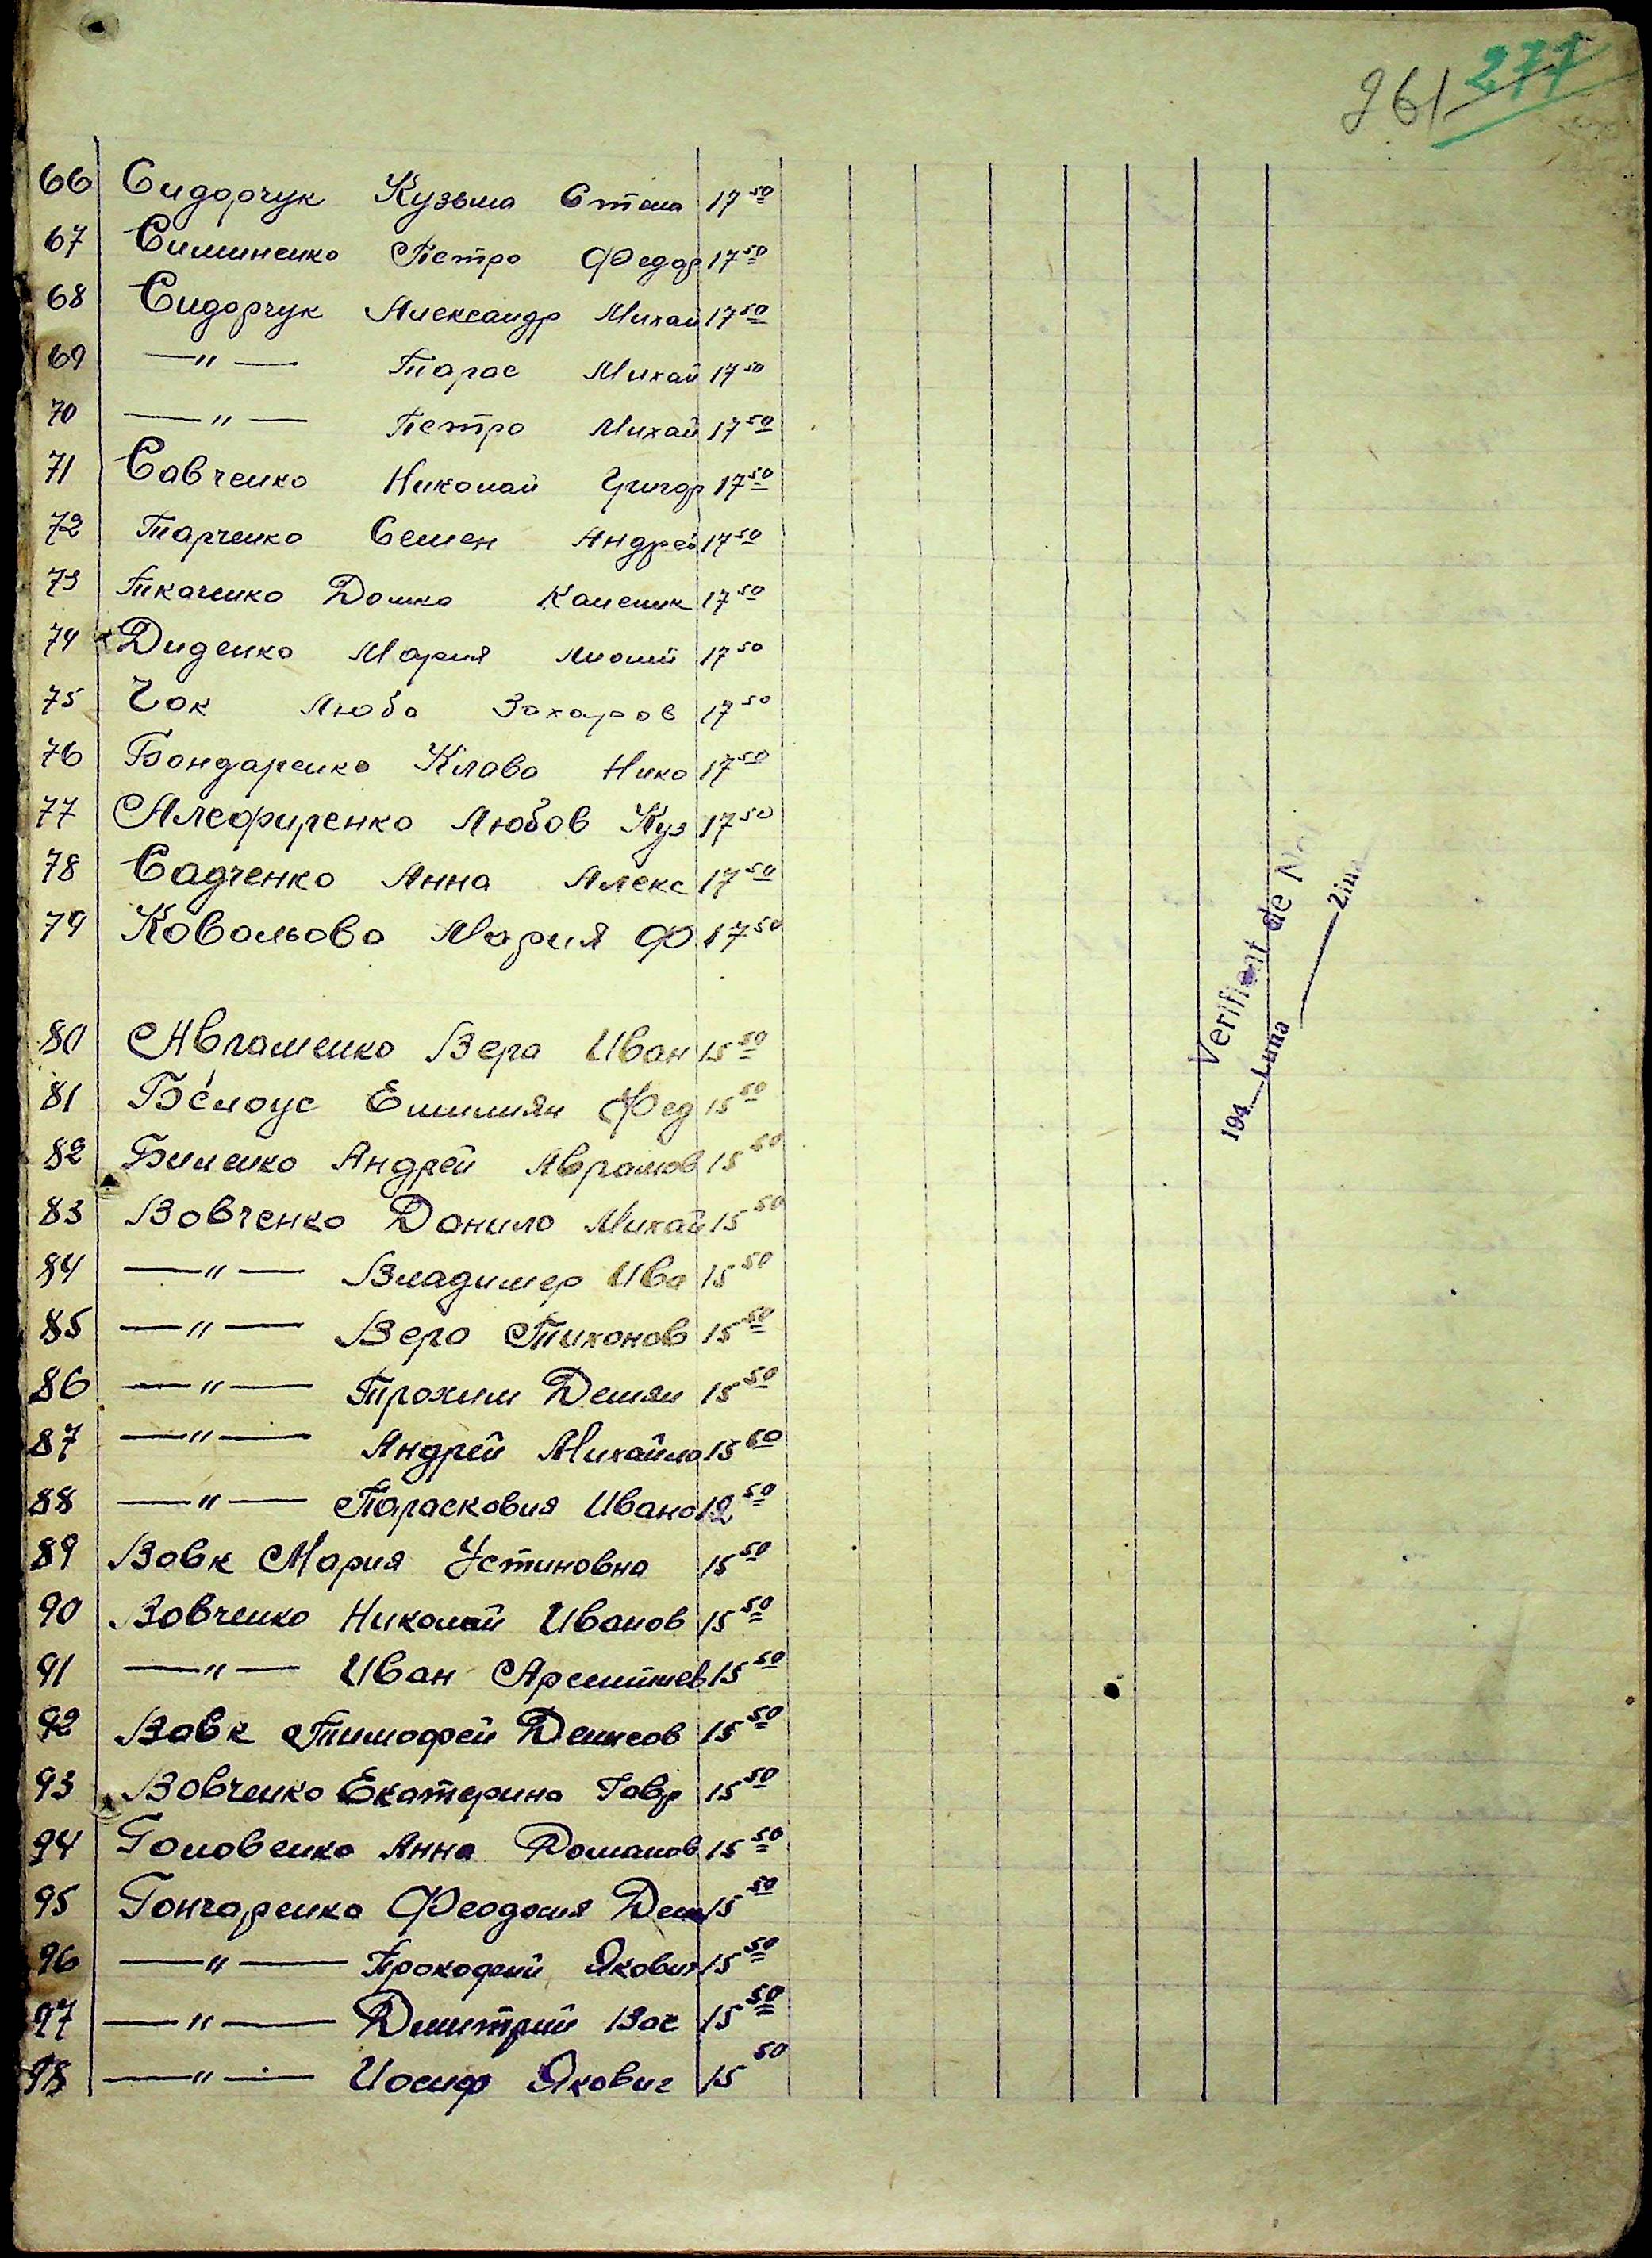 261 277
66 Сидорчук Кузьма Степа 17 50
67 Симиненко Петро Федор 17 50
68 Сидорчук Александр Михай 17 50
69 —"— Тарас Михай 17 50
70 —"— Петро Михай 17 50
71 Савченко Николай Григор 17 50
72 Тарченко Семен Андрей 17 50
73 Ткаченко Домка Каленик 17 50
74 Диденко Мария 17 50
75 Гок Люба Захаров 17 50
76 Бондаренко Клава Нико 17 50
77 Алефиренко Любов Куз 17 50
78 Садченко Анна Алекс 17 50
79 Ковальова Мария Ф 17 50
80 Авраменко Вера Иван 15 50
81 Белоус Емилиян Фед 15 50
82 Биленко Андрей Аврамов 15 50
83 Вовченко Данило Михай 15 50
84 —"— Владимер Ива 15 50
85 —"— Вера Тихонов 15 50
86 —"— Трохим Демян 15 50
87 —"— Андрей Михайло 15 50
88 —"— Парасковия Ивано 12 50
89 Вовк Мария Устиновна 15 50
90 Вовченко Николай Иванов 15 50
91 —"— Иван 15 50
92 Вовк Тимофей Денисов 15 50
93 Вовченко Екатерина Гавр 15 50
94 Головенко Анна Романов 15 50
95 Гончаренко Феодосия Дем 15 50
96 —"— Прокофий Якович 15 50
97 —"— Дмитрий 15 50
98 —"— Иосиф Якович 15 50
Verificat de
194 Luna Ziua